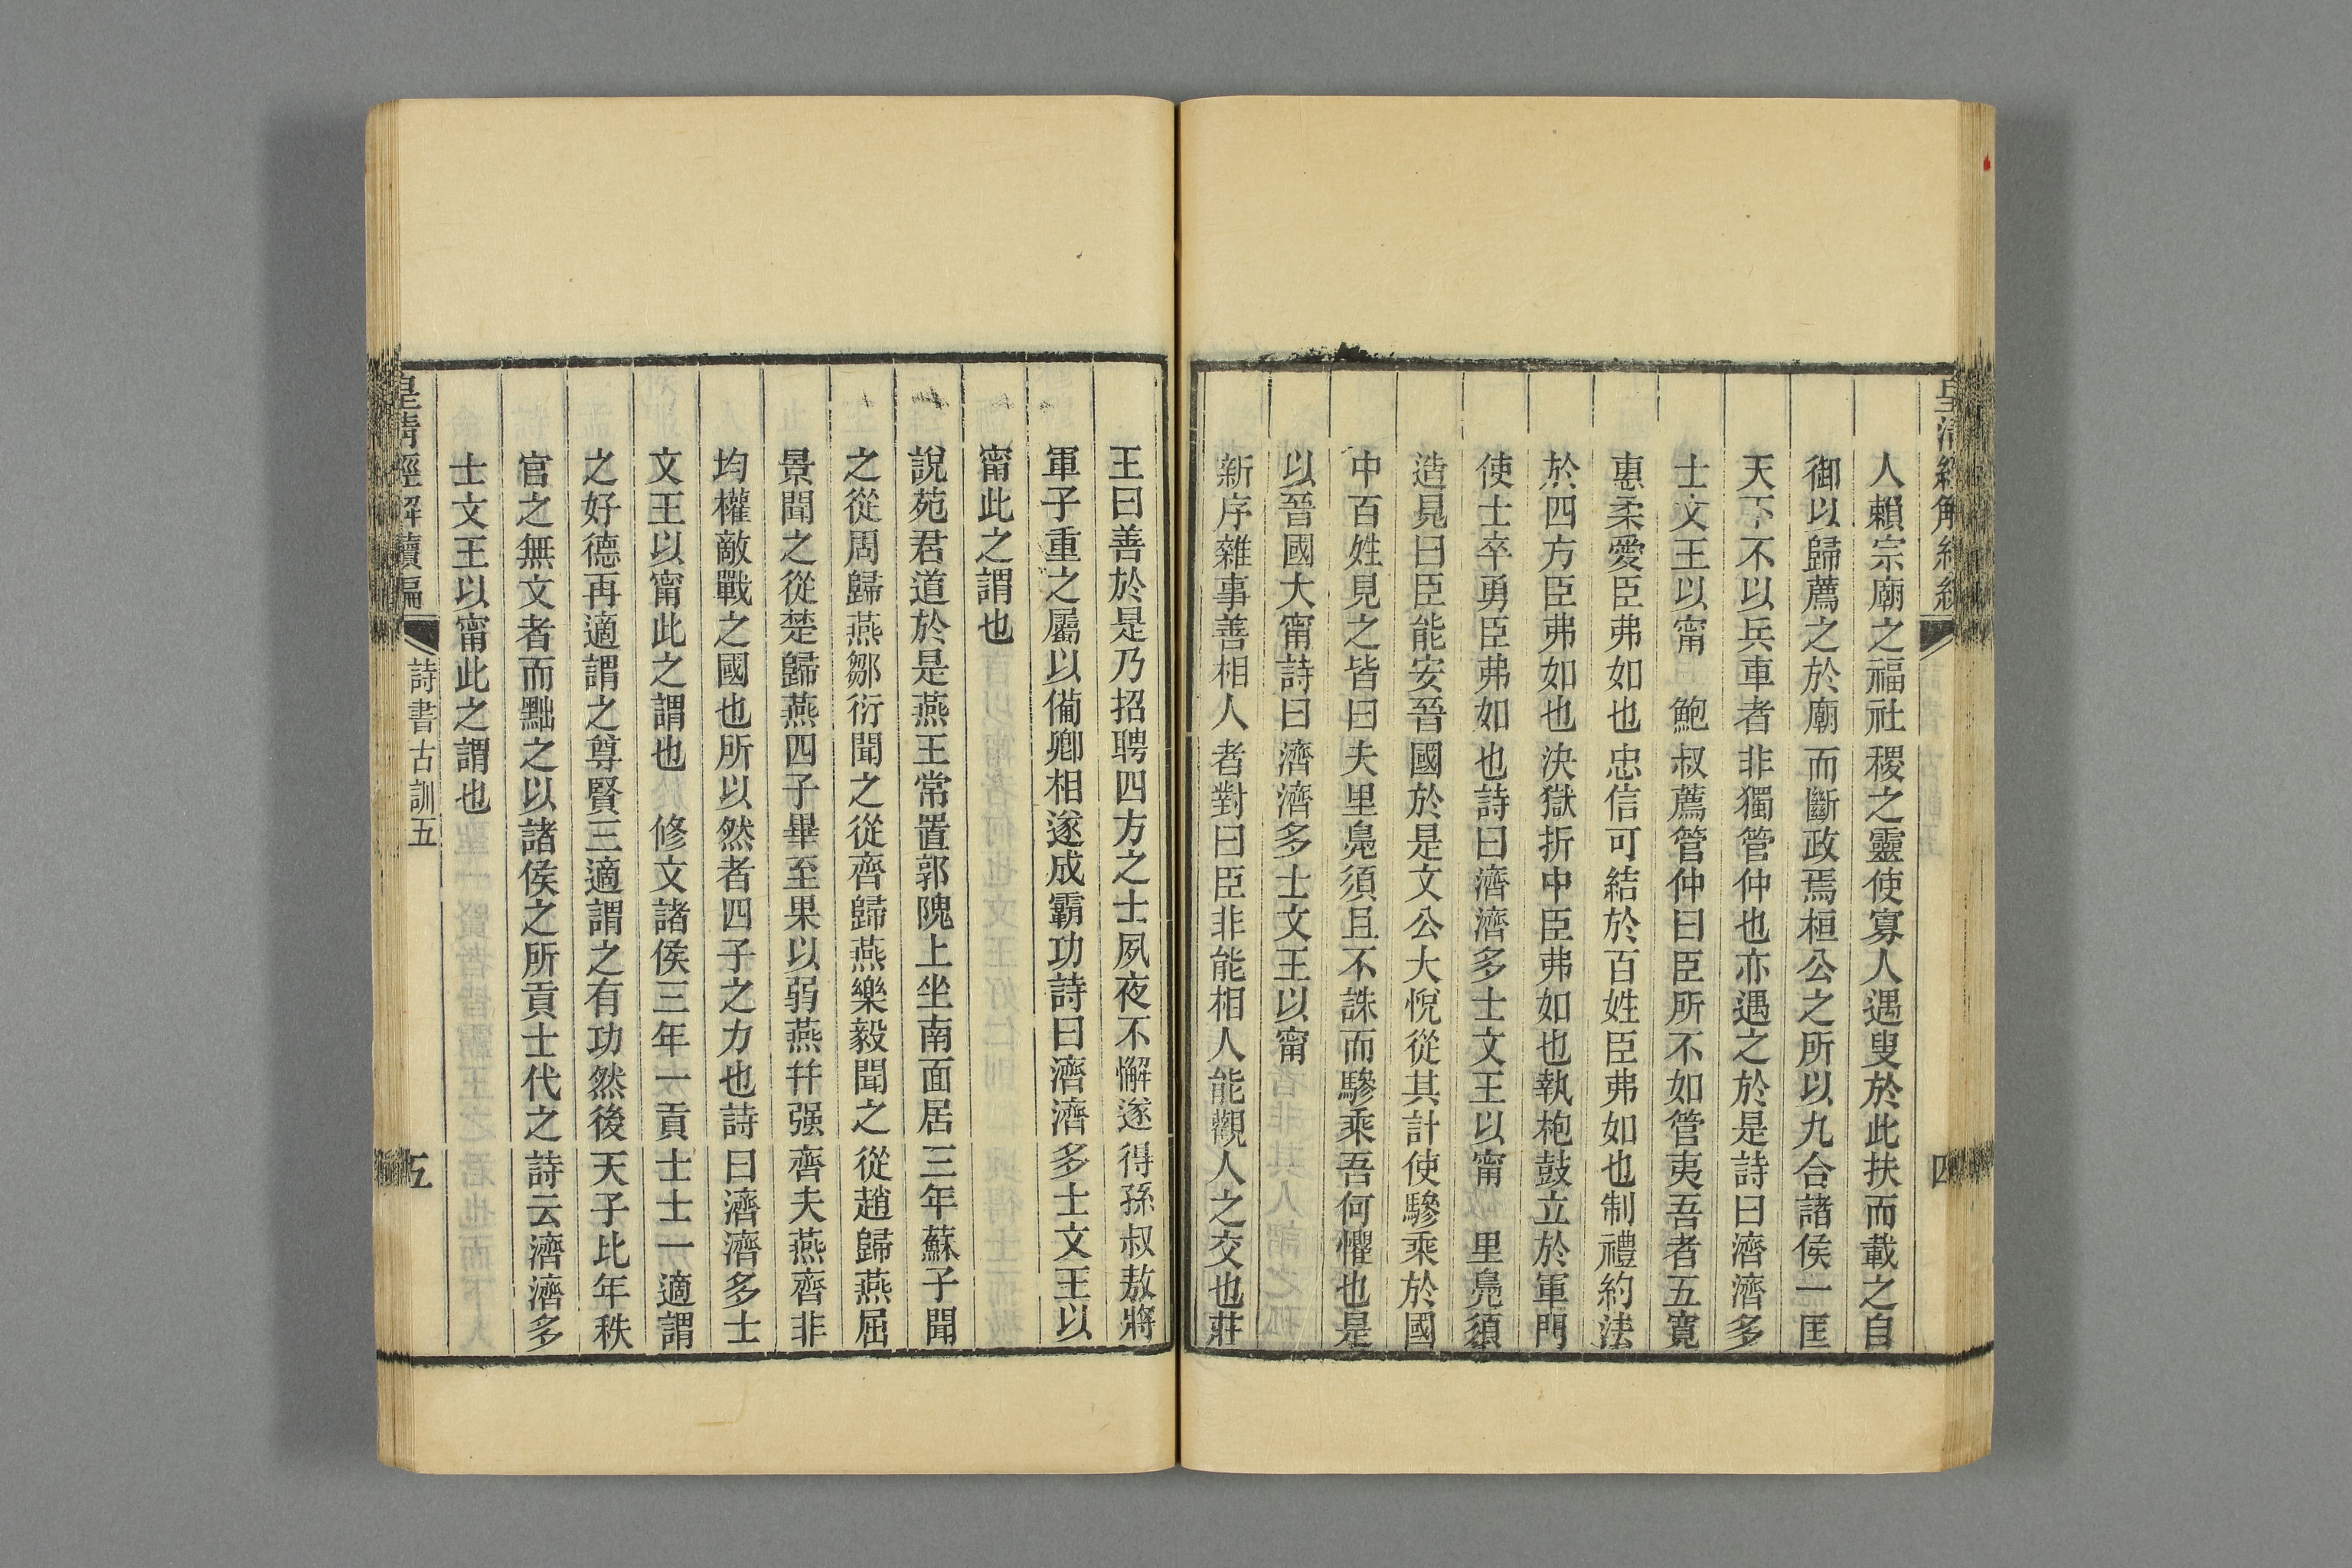 皇清經解續編
四
人賴宗廟之福社稷之靈使寡人遇叟於此扶而載之自
御以歸薦之於廟而斷政焉桓公之所以九合諸侯一匡
天下不以兵車者非獨管仲也亦遇之於是詩曰濟濟多
士文王以甯　鮑叔薦管仲曰臣所不如管夷吾者五寬
惠柔愛臣弗如也忠信可結於百姓臣弗如也制禮約法
於四方臣弗如也決獄折中臣弗如也執枹鼓立於軍門
使士卒勇臣弗如也詩曰濟濟多士文王以甯　里鳧須
造見曰臣能安晉國於是文公大悅從其計使驂乘於國
中百姓見之皆曰夫里鳧須且不誅而驂乘吾何懼也是
以晉國大甯詩曰濟濟多士文王以甯
新序雜事善相人者對曰臣非能相人能觀人之交也莊
王曰善於是乃招聘四方之士夙夜不懈遂得孫叔敖將
軍子重之屬以備卿相遂成霸功詩曰濟濟多士文王以
甯此之謂也
說苑君道於是燕王常置郭隗上坐南面居三年蘇子聞
之從周歸燕鄒衍聞之從齊歸燕樂毅聞之從趙歸燕屈
景聞之從楚歸燕四子畢至果以弱燕幷强齊夫燕齊非
均權敵戰之國也所以然者四子之力也詩曰濟濟多士
文王以甯此之謂也　修文諸侯三年一貢士士一適謂
之好德再適謂之尊賢三適謂之有功然後天子比年秩
官之無文者而黜之以諸侯之所貢士代之詩云濟濟多
士文王以甯此之謂也
皇清經解續編
詩書古訓五
五